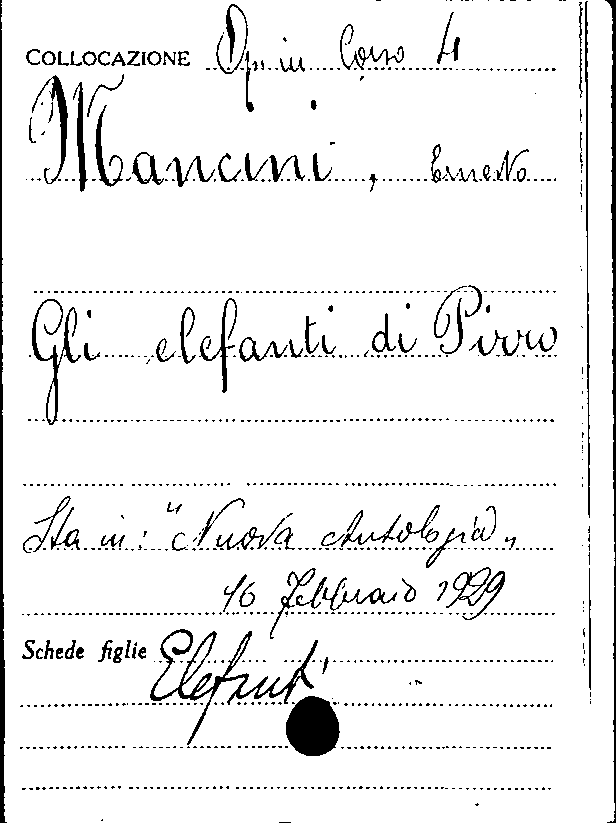 COLLOCAZIONE Op. in Corso 4
Mancini, Ernesto
Gli elefanti di Pirro
Sta in: "Nuova Antologia„
16 Febbraio 1929
Schede figlie Elefanti